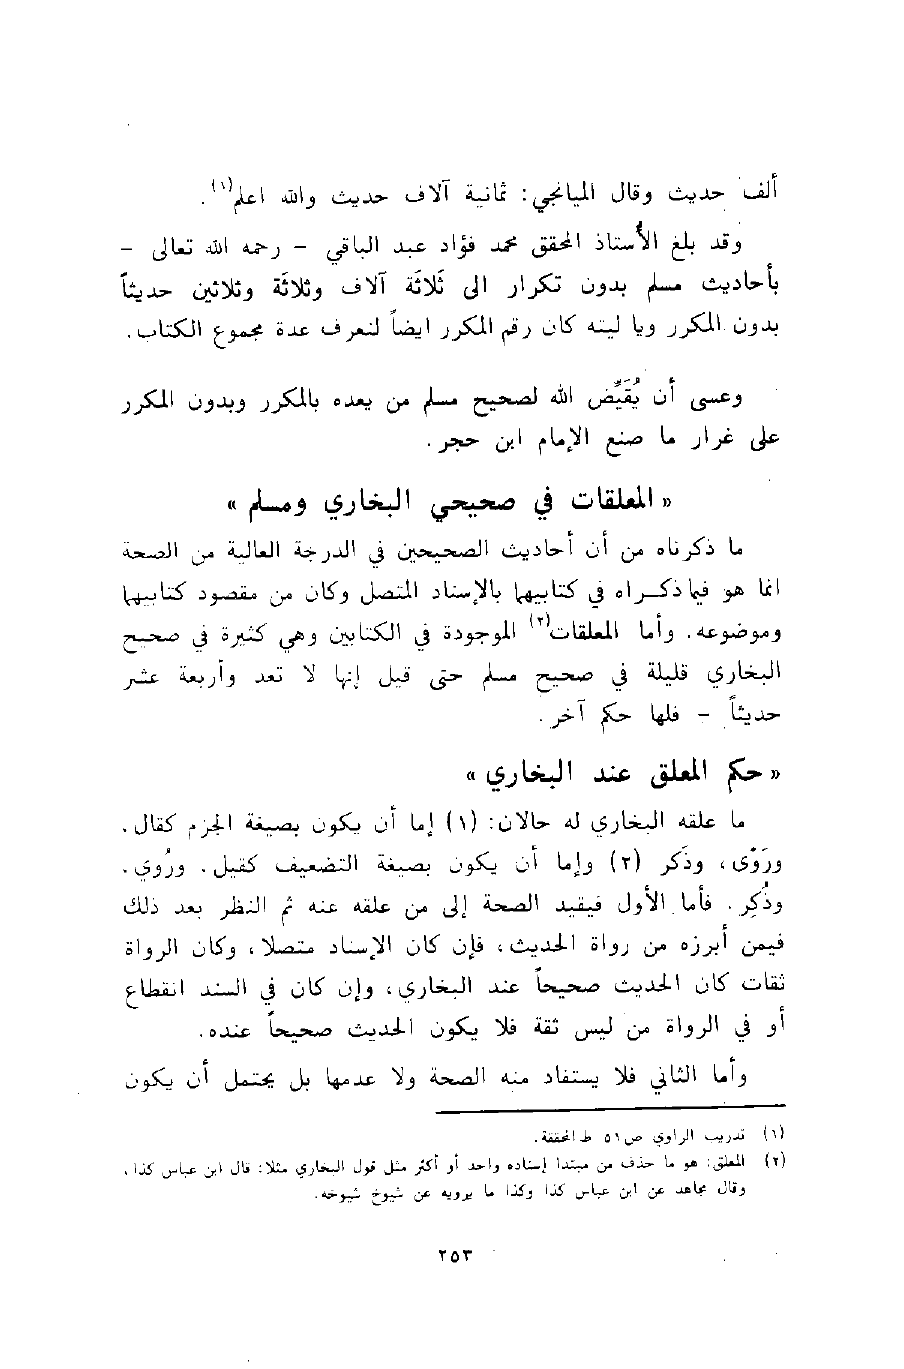 ألف حديث وقال الميانجي: ثمانية آلاف حديث والله اعلم(١).
وقد بلغ الأستاذ المحقق محمد فؤاد عبد الباقي - رحمه الله تعالى -
بأحاديث مسلم بدون تكرار الى ثلاثة آلاف وثلاثة وثلاثين حديثاً
بدون المكرر ويا ليته كان رقم المكرر ايضاً لنعرف عدة مجموع الكتاب.
وعسى أن يُقيِّض الله لصحيح مسلم من يعده بالمكرر وبدون المكرر
على غرار ما صنع الإمام ابن حجر.
« المعلقات في صحيحي البخاري ومسلم »
ما ذكرناه من أن أحاديث الصحيحين في الدرجة العالية من الصحة
انما هو فيما ذكراه في كتابيهما بالإسناد المتصل وكان من مقصود كتابيهما
وموضوعه. وأما المعلقات(٢) الموجودة في الكتابين وهي كثيرة في صحيح
البخاري قليلة في صحيح مسلم حتى قيل إنها لا تعد وأربعة عشر
حديثاً - فلها حكم آخر.
« حكم المعلق عند البخاري »
ما علقه البخاري له حالان: (١) إما أن يكون بصيغة الجزم كقال.
ورَوْى، وذَكر (٢) وإما أن يكون بصيغة التضعيف كقيل. ورُوي.
وذُكر. فأما الأول فيفيد الصحة إلى من علقه عنه ثم النظر بعد ذلك
فيمن أبرزه من رواة الحديث، فإن كان الإسناد متصلا، وكان الرواة
ثقات كان الحديث صحيحاً عند البخاري، وإن كان في السند انقطاع
أو في الرواة من ليس ثقة فلا يكون الحديث صحيحاً عنده.
وأما الثاني فلا يستفاد منه الصحة ولا عدمها بل يحتمل أن يكون
(١) تدريب الراوي ص٥١ ط المحققة.
(٢) المعلق: هو ما حذف من مبتدا إسناده واحد أو أكثر مثل قول البخاري مثلا: قال ابن عباس كذا،
وقال مجاهد عن ابن عباس كذا وكذا ما يرويه عن شيوخ شيوخه.
٢٥٣